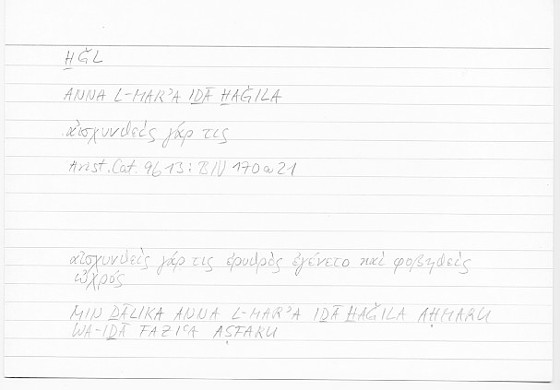 H̱ǦL
ANNA L-MARʾA IḎĀ H̱AǦILA
αἰσχυνθείς γάρ τις
Arist. Cat. 9b13: BN 170a21
αἰσχυνθείς γάρ τις ἐρυθρὸς ἐγένετο καὶ φοβηθείς
ὠχρός
MIN ḎĀLIKA ANNA L-MARʾA IḎĀ H̱AǦILA AḤMARU
WA-IḎĀ FAZIʿA AṢFARU